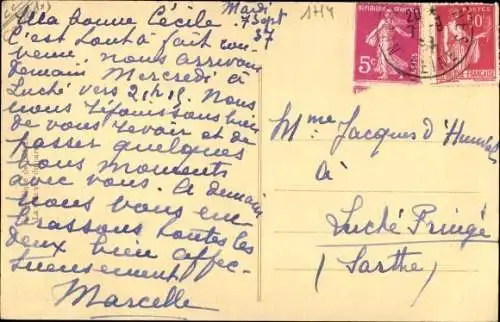 Mardi
7 Sept
37
1714
Ma bonne Cécile
C'est tout à fait con-
venu, nous arrivons
demain Mercredi à
Luché vers 21h15. Nous
nous réjouissons bien
de vous revoir et de
passer quelques
bons moments
avec vous. A demain
nous vous em-
brassons toutes les
deux bien affec-
tueusement
Marcelle
5c
50c
Mme Jacques d'
à
Luché Pringé
(Sarthe)